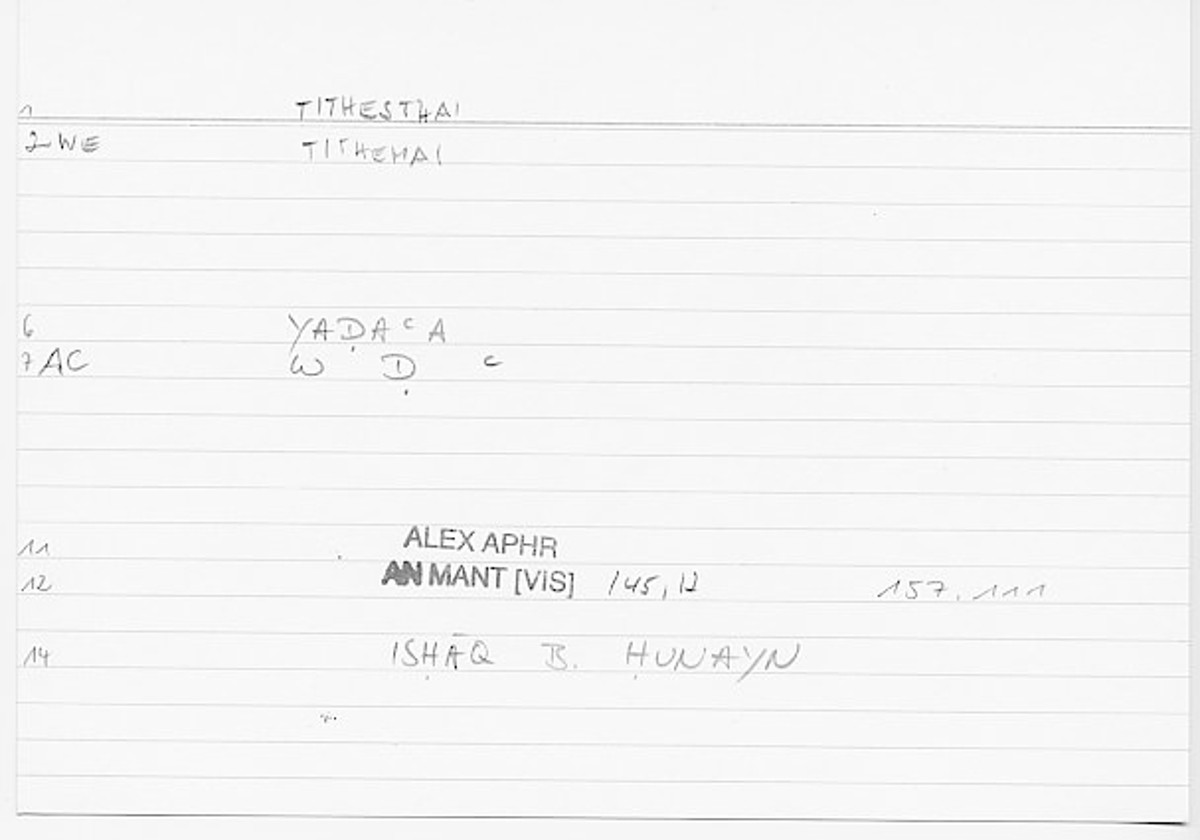 1 TITHESTHAI
2 WE TITHEMAI
6 YAḌAʿA
7 AC W Ḍ ʿ
11 ALEX APHR
12 AN MANT [VIS] 145,12 157.111
14 ISḤĀQ B. ḤUNAYN